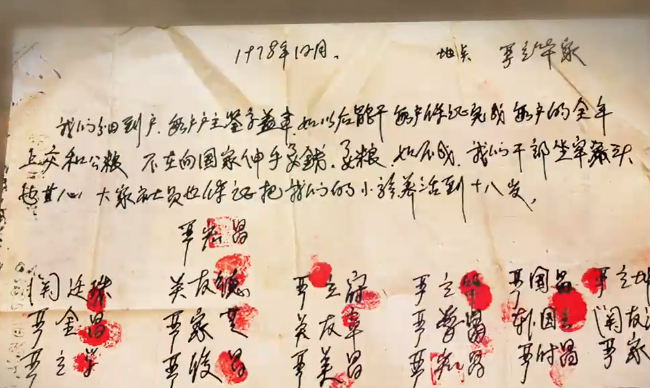 1978年12月. 地点 严立华家
我们分田到户,每户户主签字盖章,如以后能干,每户保证完成每户的全年
上交和公粮 不在向国家伸手要钱,要粮,如不成,我们干部坐牢杀头
也甘心,大家社员也保证把我们的小孩养活到十八岁,
严宏昌
关廷珠 关友德 严立富 严立华 严国昌 严立坤
严金昌 严家芝 关友章 严学昌 韩国云 关友
严立学 严俊昌 严美昌 严宏昌 严付昌 严家